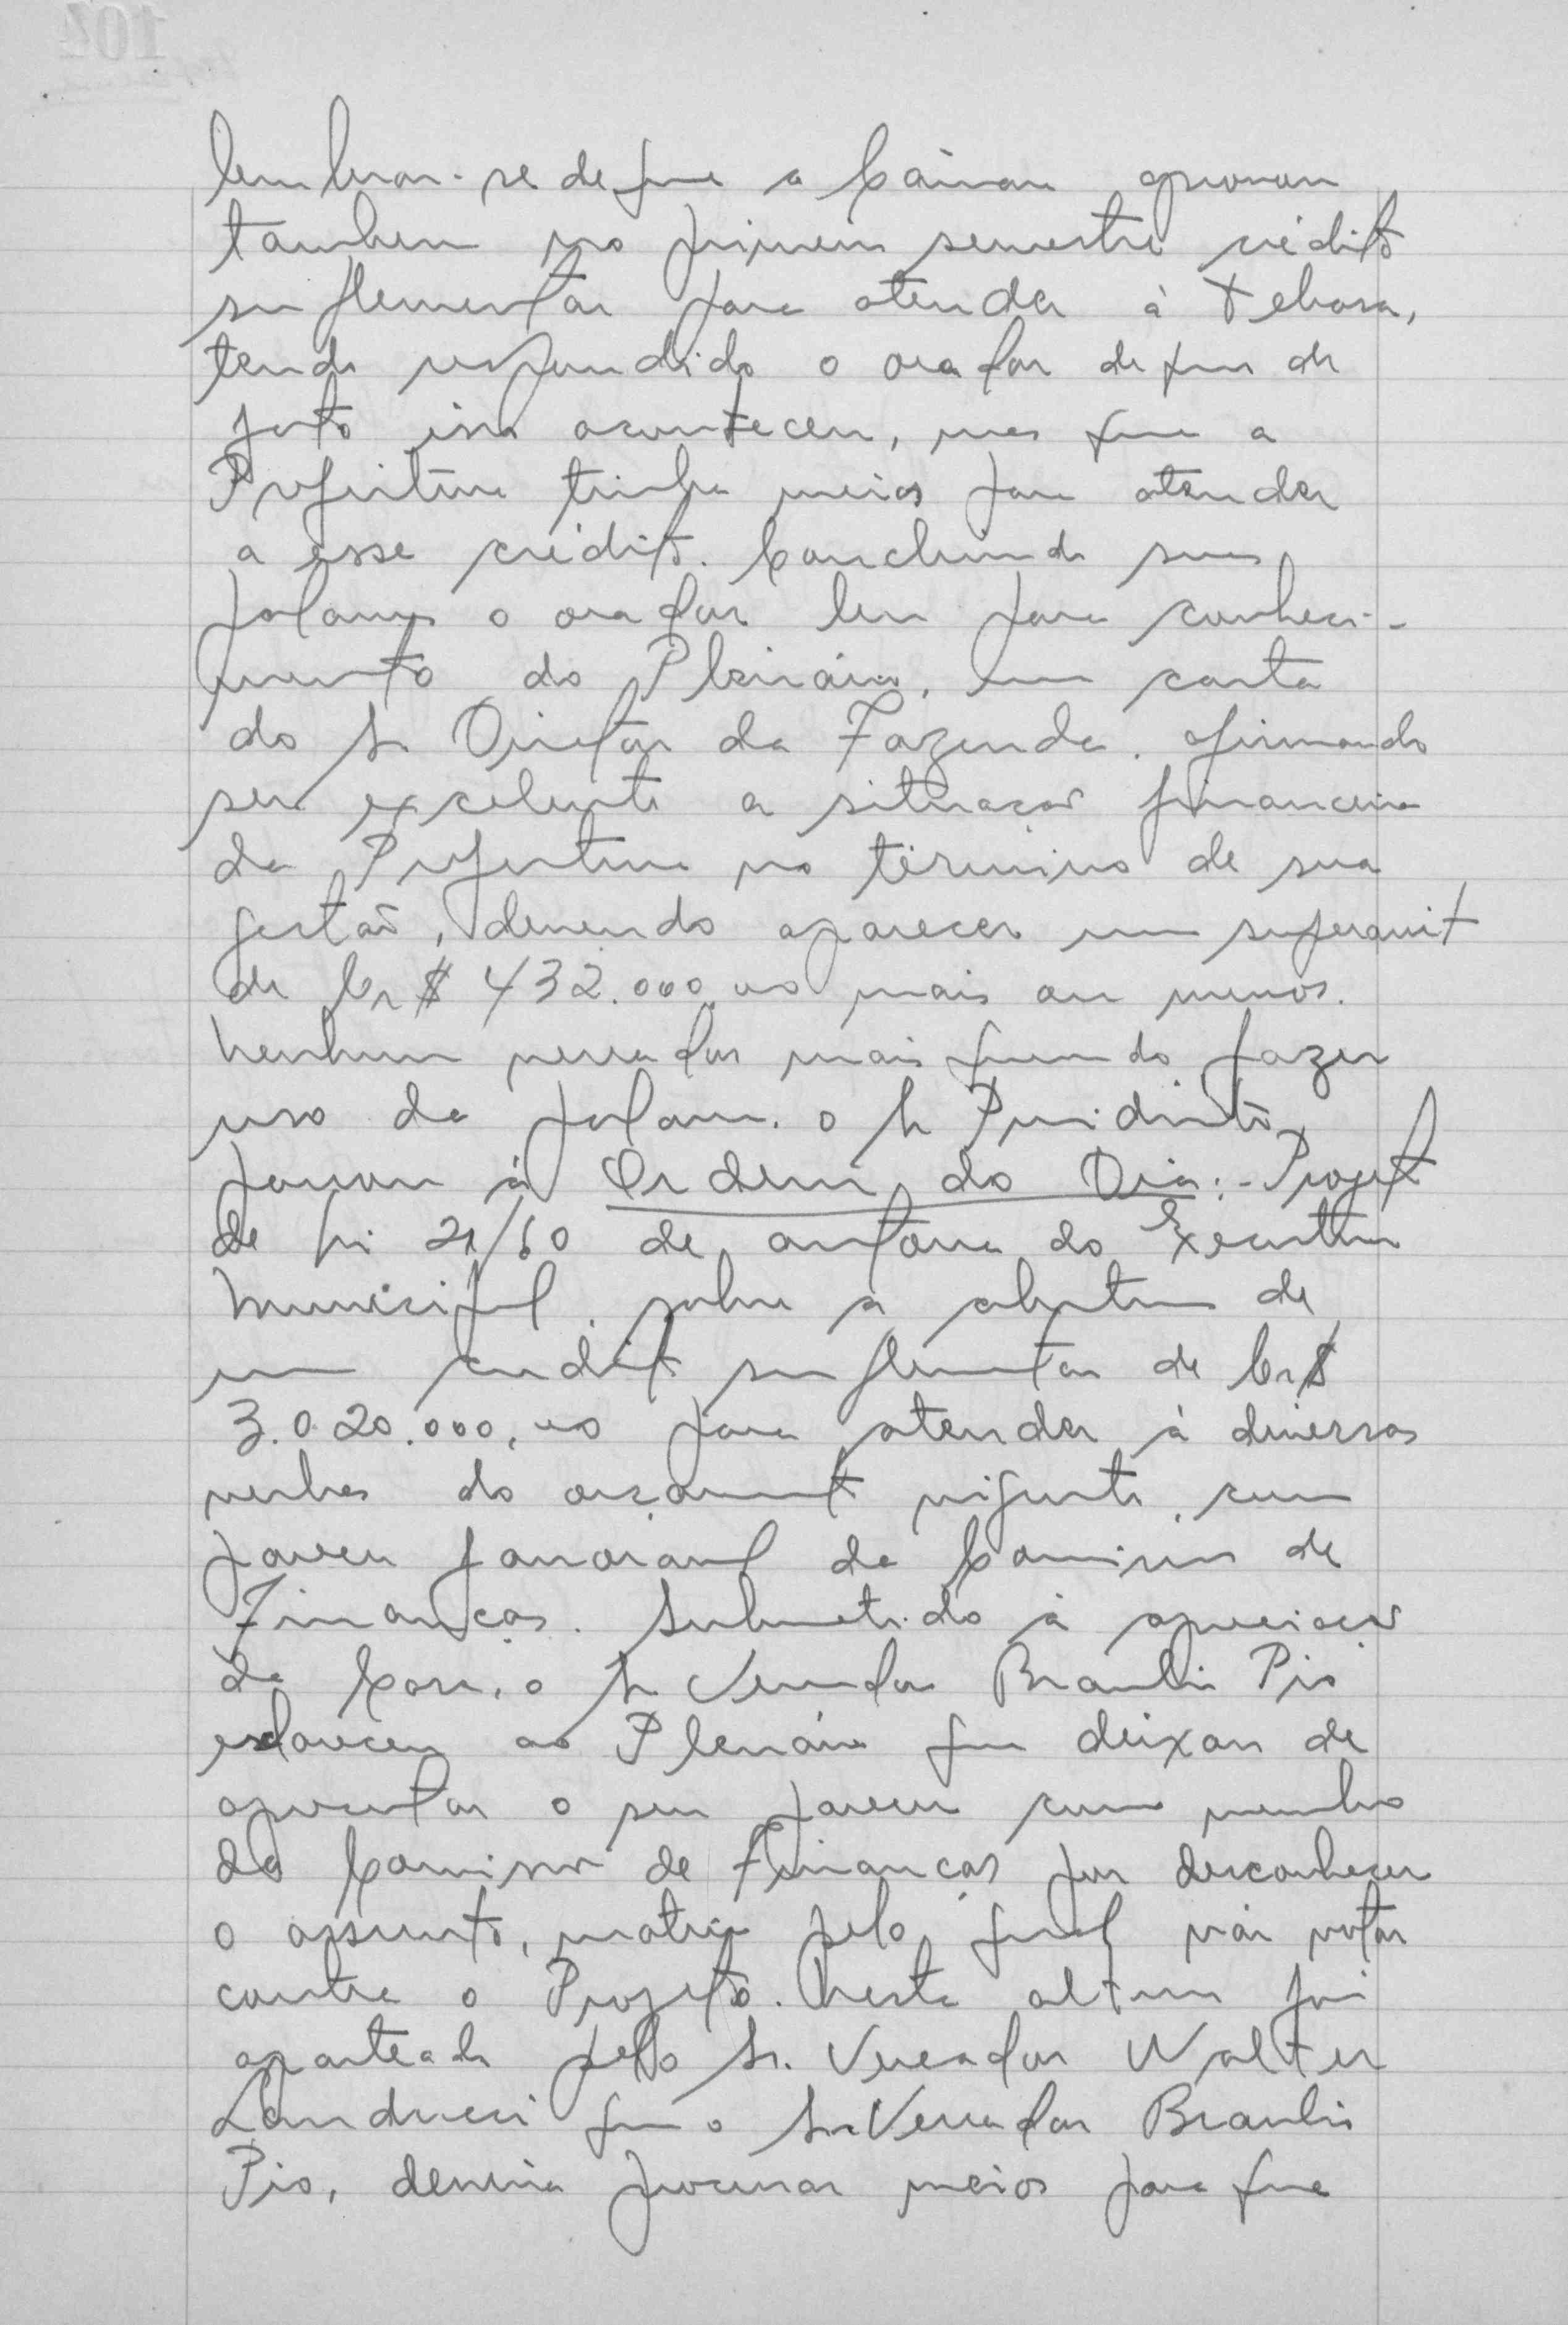 lembrar-se de que a Câmara aprovou
tambem no primeiro semestre crédito
suplementar para atender à Tebasa,
tendo respondido o orador de que de
fato isso aconteceu, mas que a
Prefeitura tinha meios para atender
a esse crédito. Concluindo sua
palavra o orador leu para conheci-
mento do Plenário, uma carta
do Sr Diretor da Fazenda, afirmando
ser excelente a situação financeira
da Prefeitura no término de sua
gestão, devendo aparecer um superavit
de Cr$ 432.000,00 mais ou menos.
Nenhum vereador mais querendo fazer
uso da palavra, o Sr Presidente
passou à Ordem do Dia:- Projeto
de Lei 21/60 de autoria do Executivo
Municipal, sobre a abertura de
um credito suplementar de Cr$
3.020.000,00 para atender à diversas
verbas do orçamento vigente, com
parecer favoravel da Comissão de
Finanças. Submetido à apreciação
da Casa, o Sr Vereador Braulio Pio
esclareceu ao Plenário que deixou de
apresentar o seu parecer como membro
da Comissão de Finanças por desconhecer
o assunto, motivo pelo qual vai votar
contra o Projeto. Nesta altura foi
aparteado pelo Sr. Vereador Walter
Landucci que o Sr Vereador Braulio
Pio, deveria procurar meios para que